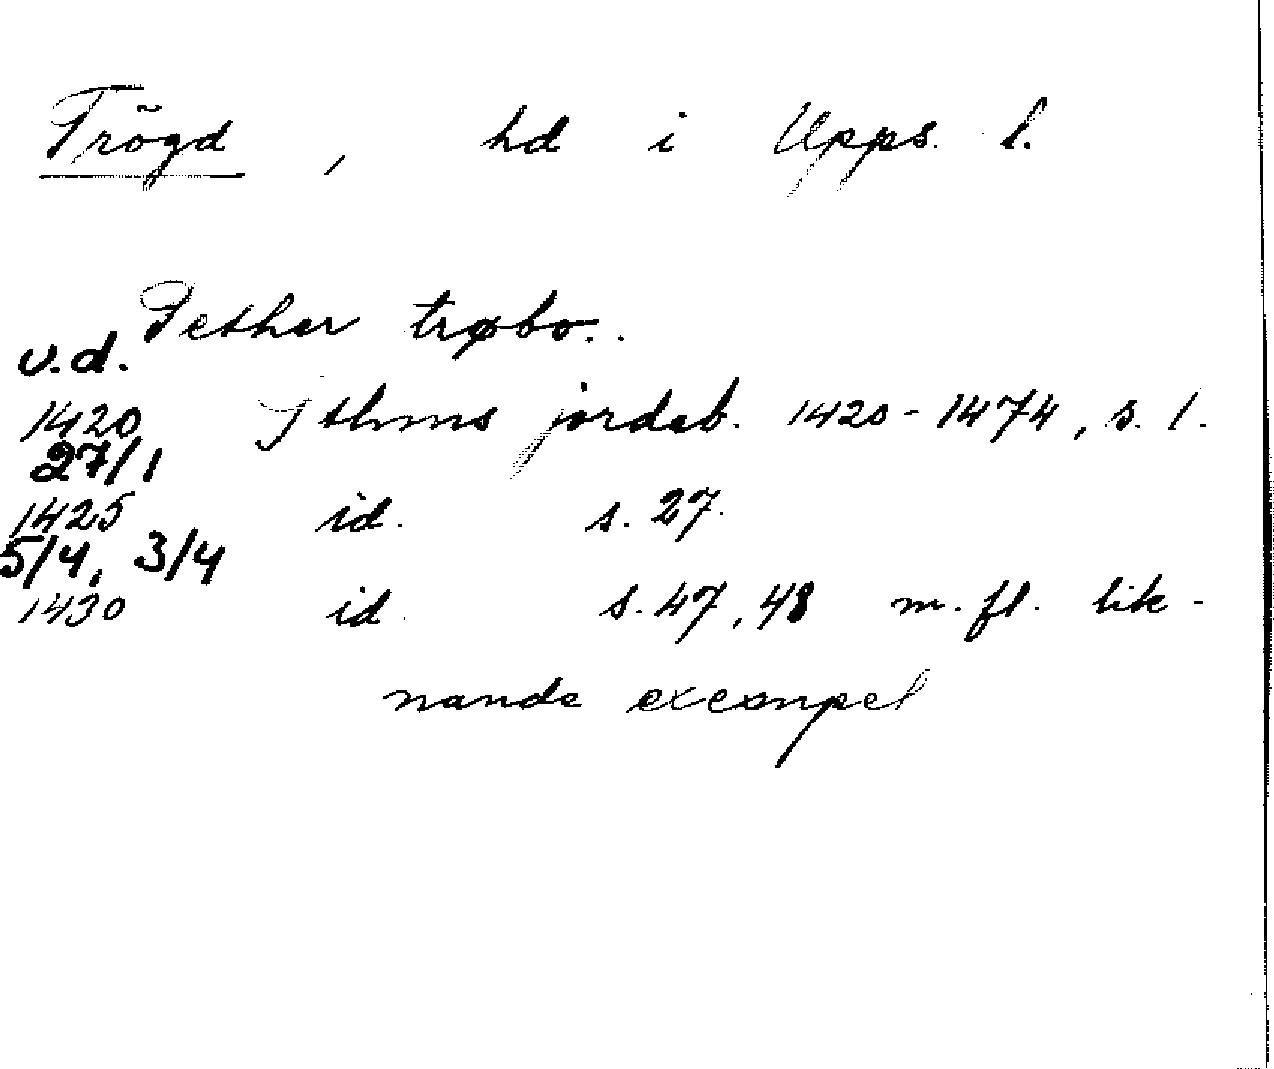 Trögd , hd i Upps. l.
Pether trøbo..
u.d.
1420 Sthms jordeb. 1420-1474, s. 1.
27/1
1425 id. s. 27.
5/4, 3/4
1430 id. s. 47, 48 m. fl. lik-
nande exempel